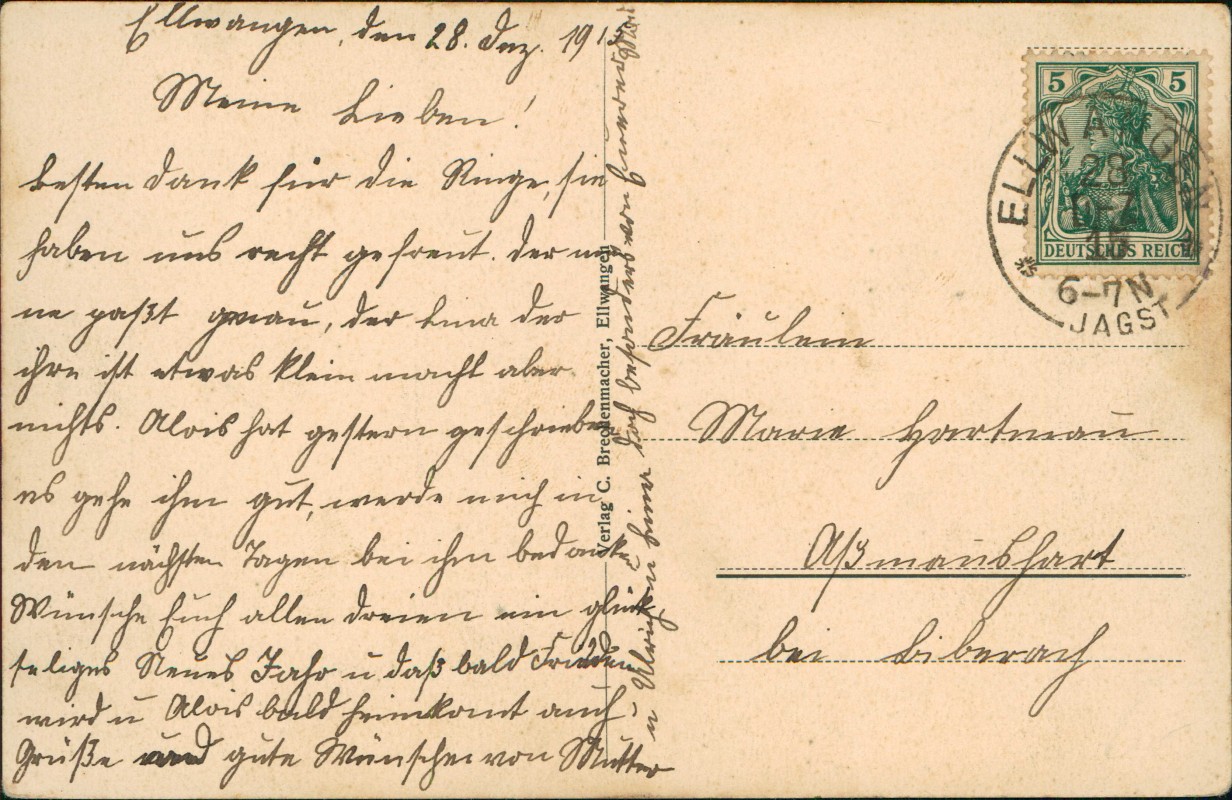 Ellwangen, den 28. Dez. 1915
Meine Lieben!
besten Dank für die Ringe, sie
haben uns recht gefreut. der mei
ne paßt genau, der Lina der
ihre ist etwas klein macht aber
nichts. Alois hat gestern geschrieben
es gehe ihm gut, werde mich in
den nächsten Tagen bei ihm bedanken
Wünsche Euch allen dreien ein glück
seliges Neues Jahr u daß bald Frieden
wird u Alois bald heimkomt auch
Grüße und gute Wünsche von Mutter
u
doch besonders von
Verlag C. Brechenmacher, Ellwangen
5 5
DEUTSCHES REICH
ELLWANGEN
28
DEZ
15
6-7N
JAGST
Fräulein
Marie Hartmann
Aßmannshart
bei Biberach